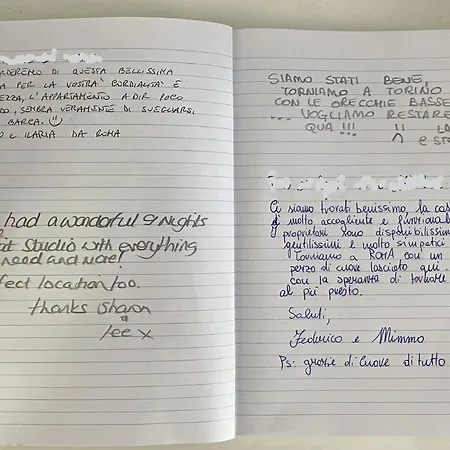 RDEREMO DI QUESTA BELLISSIMA
A PER LA VOSTRA CORDIALITA' E
EZZA, L'APPARTAMENTO A DIR POCO
DO, SEMBRA VERAMENTE DI SVEGLIARSI
BARCA.
O E ILARIA DA ROMA
had a wonderful 9 Nights
at Studio with everything
need and more!
fect location too.
thanks Sharon
&
Lee x
SIAMO STATI BENE,
TORNIAMO A TORINO
CON LE ORECCHIE BASSE
... VOGLIAMO RESTARE
QUA !!! !! LA
E STO
Ci siamo trovati benissimo, la cas
è molto accogliente e funzional
I proprietari sono disponibilissim
gentilissimi e molto simpatici
Torniamo a ROMA con un
pezzo di cuore lasciato qui.
con la speranza di tornare
al più presto.
Saluti,
Federico e Mimmo
Ps: grazie di Cuore di tutto